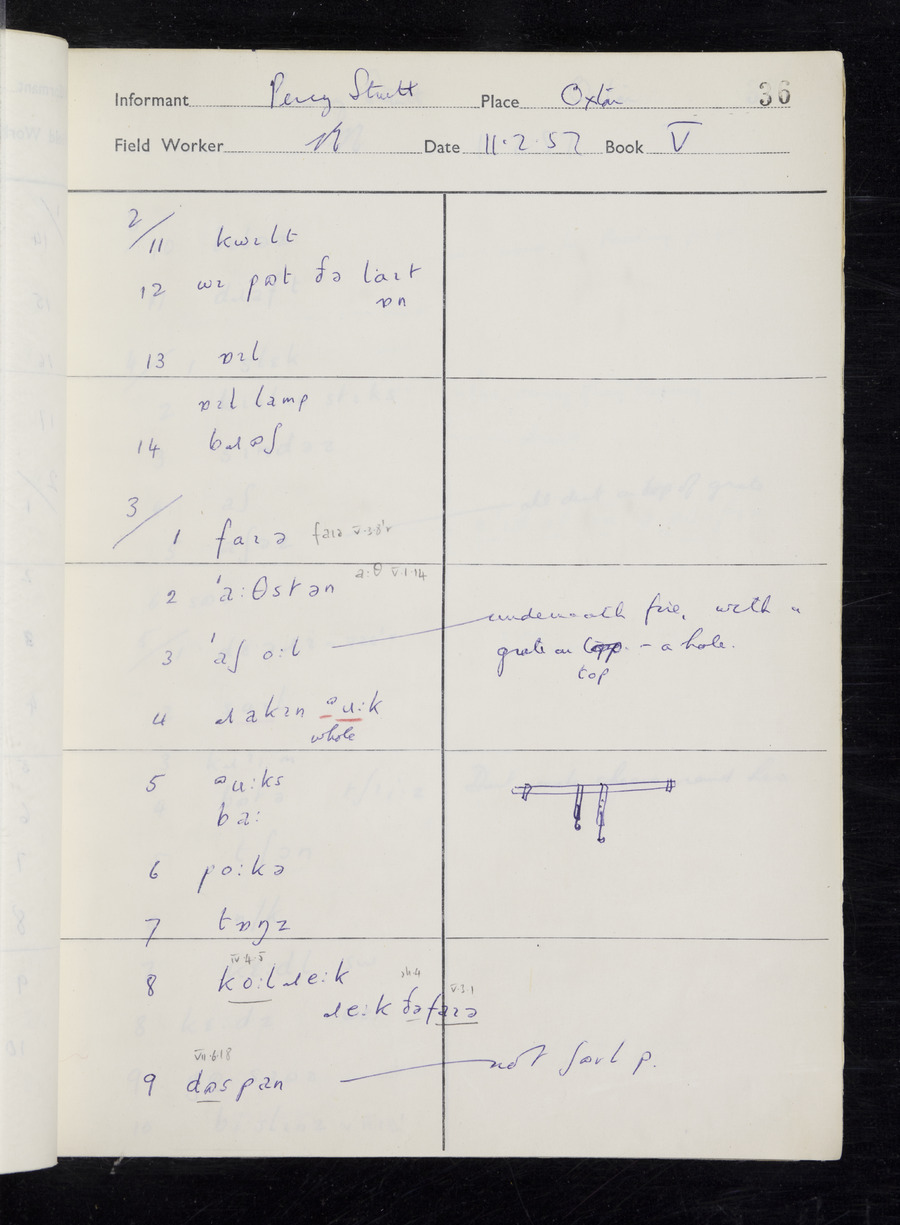 36
Informant Percy Strutt Place Oxton
Field Worker Date 11·2·57 Book V
2/
11 kwɪlt
12 wɪ pʊt ðə laɪt
ɒn
13 ɒɪl
ɒɪl lamp
14 bɹʊʃ
3/
1 faɪə faɪə V·3·8'r
2 'a:θstən a:θ V·1·14
3 'aʃ o:l underneath fire, with a
grate on top - a hole.
top
4 ɹakɪn ʊu:k
whole
5 ʊu:ks
ba:
6 po:kə
7 tɒŋz
8 ko:l ɹe:k IV·4·5
ɹe:k ðə faɪə V·3·1
VII·6·18
9 dʊspan not ʃovl p.